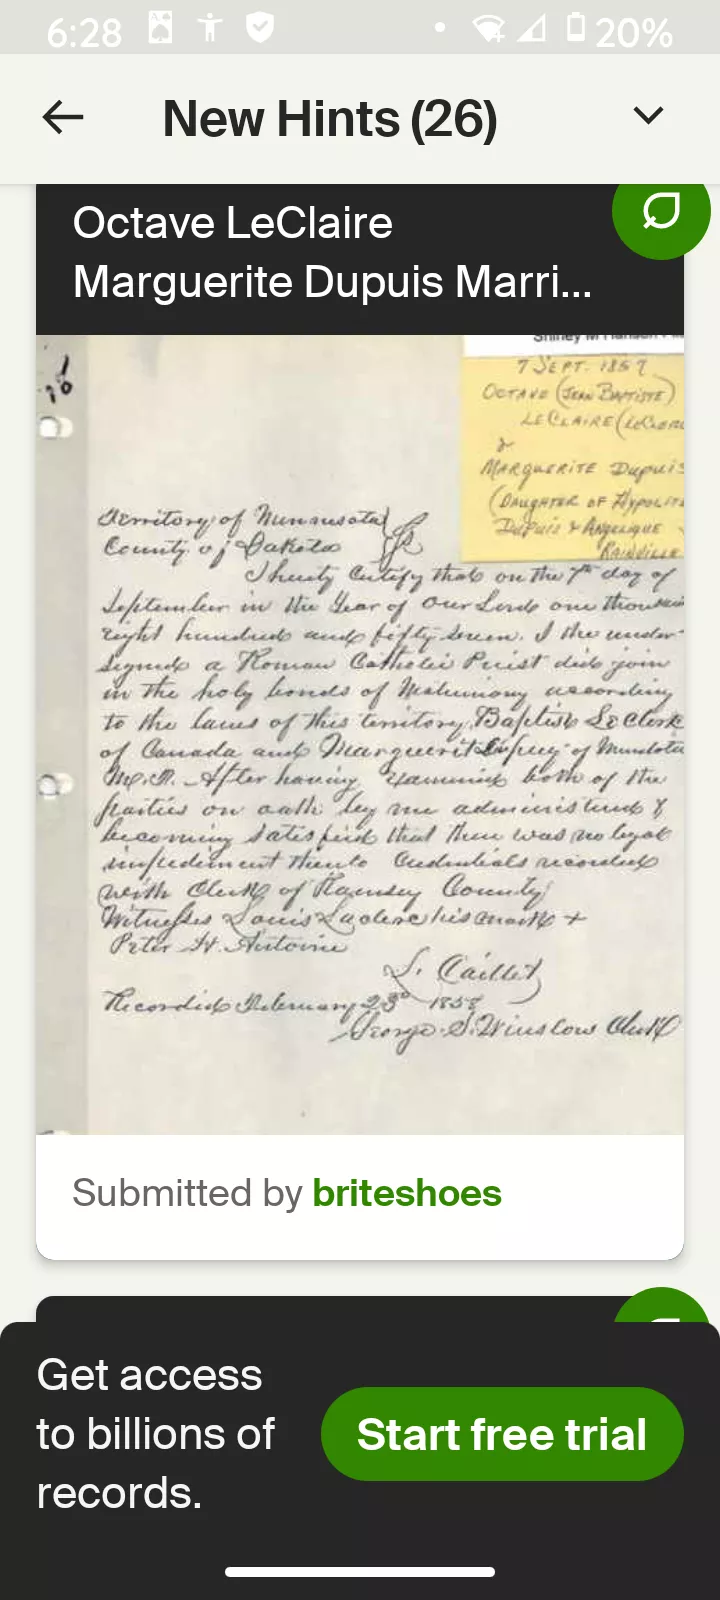 6:28
20%
New Hints (26)
Octave LeClaire
Marguerite Dupuis Marri...
7 SEPT. 1857
OCTAVE (JEAN BAPTISTE)
LECLAIRE (LECLERC
&
MARGUERITE DUPUIS
(DAUGHTER OF HYPOLITE
DUPUIS & ANGELIQUE
RAINVILLE
Territory of Minnesota
County of Dakota
I hereby Certify that on the 7th day of
September in the Year of Our Lord one thousan
eight hundred and fifty seven. I the under-
signed a Roman Catholic Priest did join
in the holy bonds of Matrimony according
to the laws of this territory Baptist Le Clerk
of Canada and Marguerit Dupuy of Mendota
M.T. After having examined both of the
parties on oath by me administered &
becoming satisfied that there was no legal
impediment thereto Credentials recorded
with Clerk of Ramsey County
Witnesses Louis Laclere his mark +
Peter St. Antoine
L. Caillet
Recorded February 23d 1858
George S. Winslow Clerk
Submitted by briteshoes
Get access
to billions of
records.
Start free trial